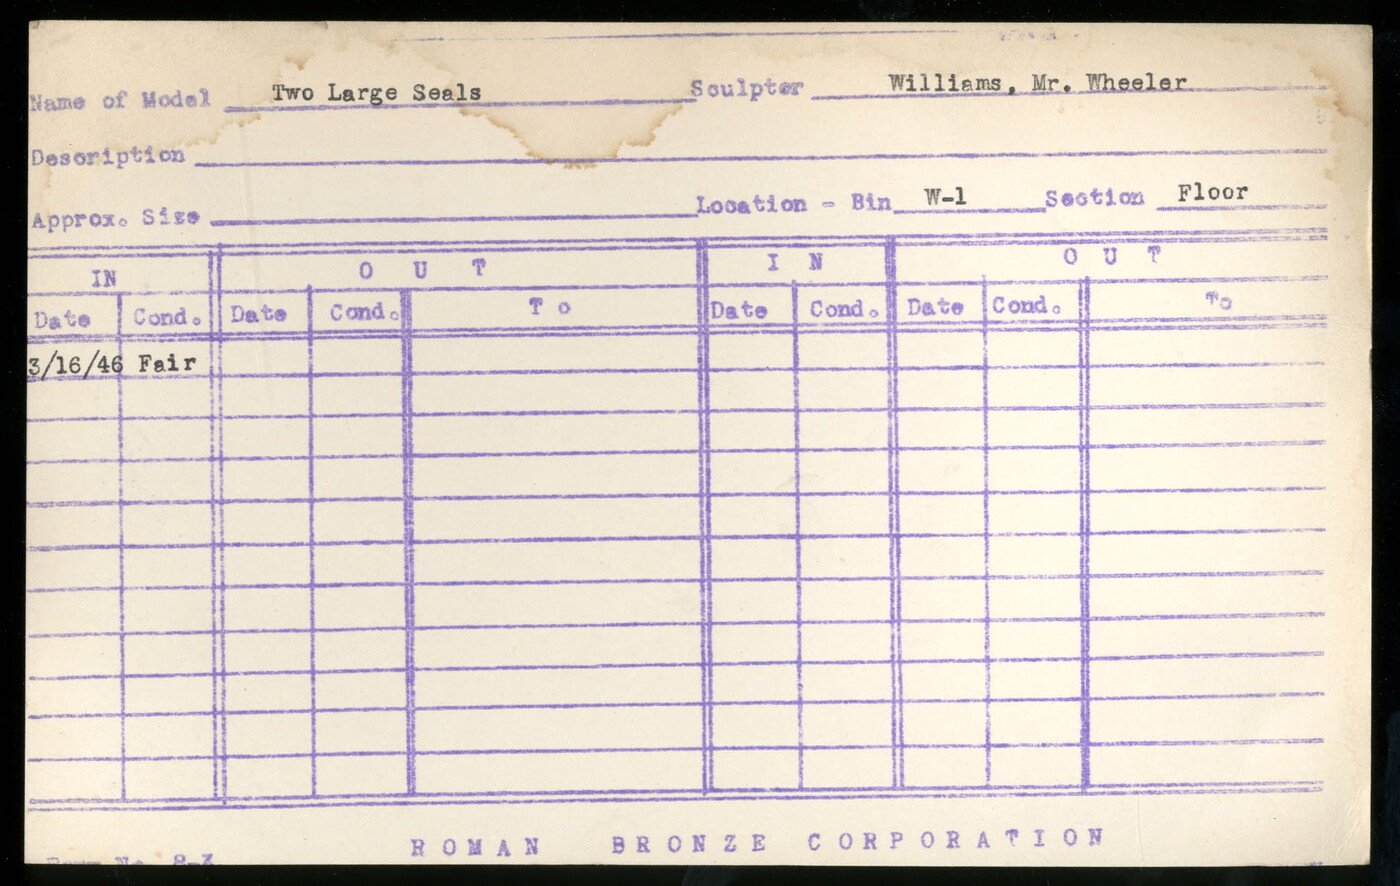 Name of Model Two Large Seals Sculptor Williams, Mr. Wheeler
Description
Approx. Size Location - Bin W-1 Section Floor
IN OUT IN OUT
Date Cond. Date Cond. To Date Cond. Date Cond. To
3/16/46 Fair
ROMAN BRONZE CORPORATION
Form No. 8-3